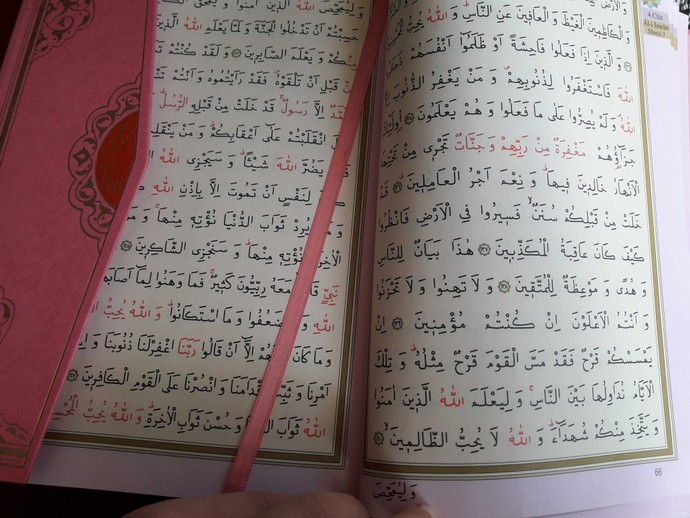 4.Cüz
Âl-i İmrân
Sûresi 3
وَ الْكَاظِمِينَ الْغَيْظَ وَ الْعَافِينَ عَنِ النَّاسِۜ وَ اللّٰهُ يُحِبُّ
وَ الَّذِينَ اِذَا فَعَلُوا فَاحِشَةً اَوْ ظَلَمُٓوا اَنْفُسَهُمْ ذَكَرُوا
اللّٰهَ فَاسْتَغْفَرُوا لِذُنُوبِهِمْࣕ وَ مَنْ يَغْفِرُ الذُّنُوبَ اِلَّا
اللّٰهُࣕ وَ لَمْ يُصِرُّوا عَلٰى مَا فَعَلُوا وَ هُمْ يَعْلَمُونَ ﴿١٣٥﴾ اُو۬لٰٓئِكَ
جَزَٓاؤُ۬هُمْ مَغْفِرَةٌ مِنْ رَبِّهِمْ وَ جَنَّاتٌ تَجْرِى مِنْ تَحْتِهَا
الْاَنْهَارُ خَالِدِينَ فِيهَاۜ وَ نِعْمَ اَجْرُ الْعَامِلِينَۜ ﴿١٣٦﴾ قَدْ
خَلَتْ مِنْ قَبْلِكُمْ سُنَنٌۙ فَسِيرُوا فِى الْاَرْضِ فَانْظُرُوا
كَيْفَ كَانَ عَاقِبَةُ الْمُكَذِّبِينَ ﴿١٣٧﴾ هٰذَا بَيَانٌ لِلنَّاسِ
وَ هُدًى وَ مَوْعِظَةٌ لِلْمُتَّقِينَ ﴿١٣٨﴾ وَ لَا تَهِنُوا وَ لَا تَحْزَنُوا
وَ اَنْتُمُ الْاَعْلَوْنَ اِنْ كُنْتُمْ مُؤْمِنِينَ ﴿١٣٩﴾ اِنْ
يَمْسَسْكُمْ قَرْحٌ فَقَدْ مَسَّ الْقَوْمَ قَرْحٌ مِثْلُهُۜ وَ تِلْكَ
الْاَيَّامُ نُدَاوِلُهَا بَيْنَ النَّاسِۚ وَ لِيَعْلَمَ اللّٰهُ الَّذِينَ اٰمَنُوا
وَ يَتَّخِذَ مِنْكُمْ شُهَدَٓاءَۜ وَ اللّٰهُ لَا يُحِبُّ الظَّالِمِينَۙ ﴿١٤٠﴾
66
وَ لِيُمَحِّصَ
وَ لِيُمَحِّصَ اللّٰهُ الَّذِينَ اٰمَنُوا وَ يَمْحَقَ
حَسِبْتُمْ اَنْ تَدْخُلُوا الْجَنَّةَ وَ لَمَّا يَعْلَمِ اللّٰهُ
مِنْكُمْ وَ يَعْلَمَ الصَّابِرِينَ ﴿١٤٢﴾ وَ لَقَدْ كُنْتُمْ
مِنْ قَبْلِ اَنْ تَلْقَوْهُࣕ فَقَدْ رَاَيْتُمُوهُ وَ اَنْتُمْ
اِلَّا رَسُولٌۚ قَدْ خَلَتْ مِنْ قَبْلِهِ الرُّسُلُۜ
انْقَلَبْتُمْ عَلٰٓى اَعْقَابِكُمْۜ وَ مَنْ يَنْقَلِبْ
يَضُرَّ اللّٰهَ شَيْـًٔاۜ وَ سَيَجْزِى اللّٰهُ
لِنَفْسٍ اَنْ تَمُوتَ اِلَّا بِاِذْنِ اللّٰهِ
يُرِدْ ثَوَابَ الدُّنْيَا نُؤْتِهِ مِنْهَاۚ وَ مَنْ
الْاٰخِرَةِ نُؤْتِهِ مِنْهَاۜ وَ سَنَجْزِى الشَّاكِرِينَ ﴿١٤٥﴾
نَبِىٍّ قَاتَلَۙ مَعَهُ رِبِّيُّونَ كَثِيرٌۚ فَمَا وَهَنُوا لِمَٓا اَصَابَهُمْ
اللّٰهِ ضَعُفُوا وَ مَا اسْتَكَانُواۜ وَ اللّٰهُ يُحِبُّ
وَ مَا كَانَ قَوْلَهُمْ اِلَّٓا اَنْ قَالُوا رَبَّنَا اغْفِرْ لَنَا ذُنُوبَنَا وَ
اَمْرِنَا وَ ثَبِّتْ اَقْدَامَنَا وَ انْصُرْنَا عَلَى الْقَوْمِ الْكَافِرِينَ ﴿١٤٧﴾
اللّٰهُ ثَوَابَ الدُّنْيَا وَ حُسْنَ ثَوَابِ الْاٰخِرَةِۜ وَ اللّٰهُ يُحِبُّ